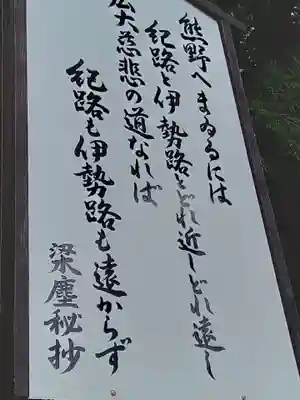 熊野へまゐるには
紀路と伊勢路とどれ近しどれ遠し
広大慈悲の道なれば
紀路も伊勢路も遠からず
梁塵秘抄